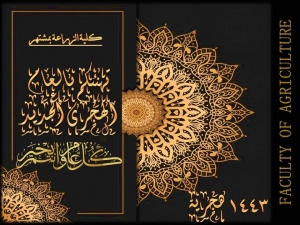 كلية الزراعة بمشتهر
تهنئكم بالعام
الهجرى الجديد
كل عام وانتم بخير
١٤٤٣ هجرية
FACULTY OF AGRICULTURE